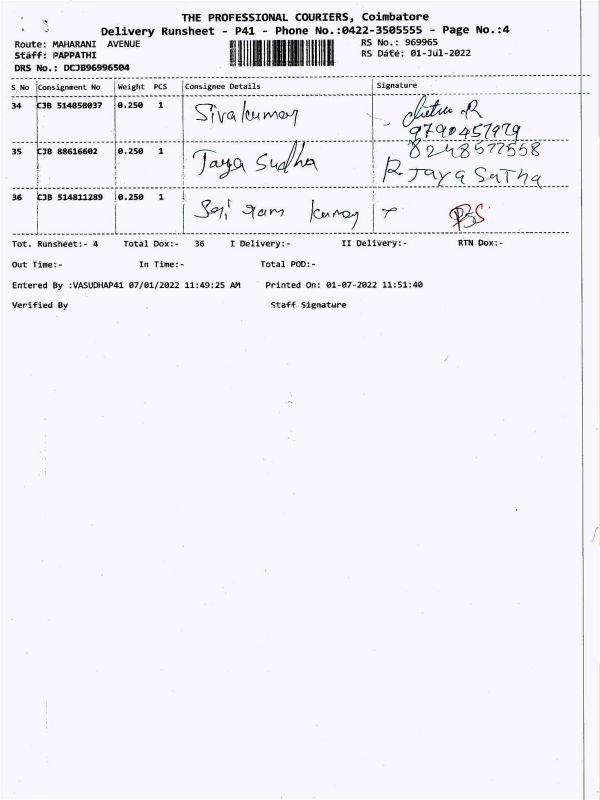 THE PROFESSIONAL COURIERS, Coimbatore
Delivery Runsheet - P41 - Phone No.:0422-3505555 - Page No.:4
Route: MAHARANI AVENUE
RS No.: 969965
Staff: PAPPATHI
RS Date: 01-Jul-2022
DRS No.: DCJB96996504
S_No Consignment No Weight PCS Consignee Details Signature
34 CJB 514858037 0.250 1 Sivakumar
9790457979
35 CJB 88616602 0.250 1 Jaya Sudha 8248577558
R. JAYA SUTHA
36 CJB 514811289 0.250 1 ram kumar
Tot. Runsheet:- 4 Total Dox:- 36 I Delivery:- II Delivery:- RTN Dox:-
Out Time:- In Time:- Total POD:-
Entered By :VASUDHAP41 07/01/2022 11:49:25 AM Printed On: 01-07-2022 11:51:40
Verified By Staff Signature